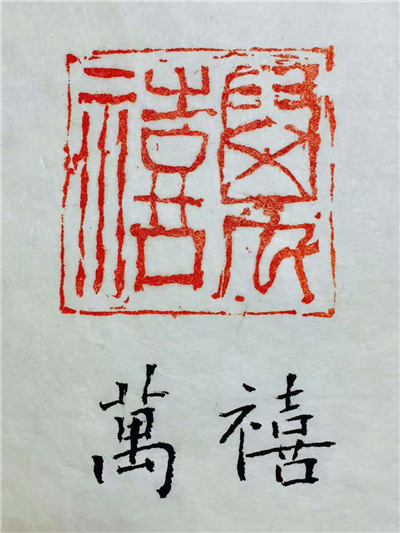 萬禧
萬禧